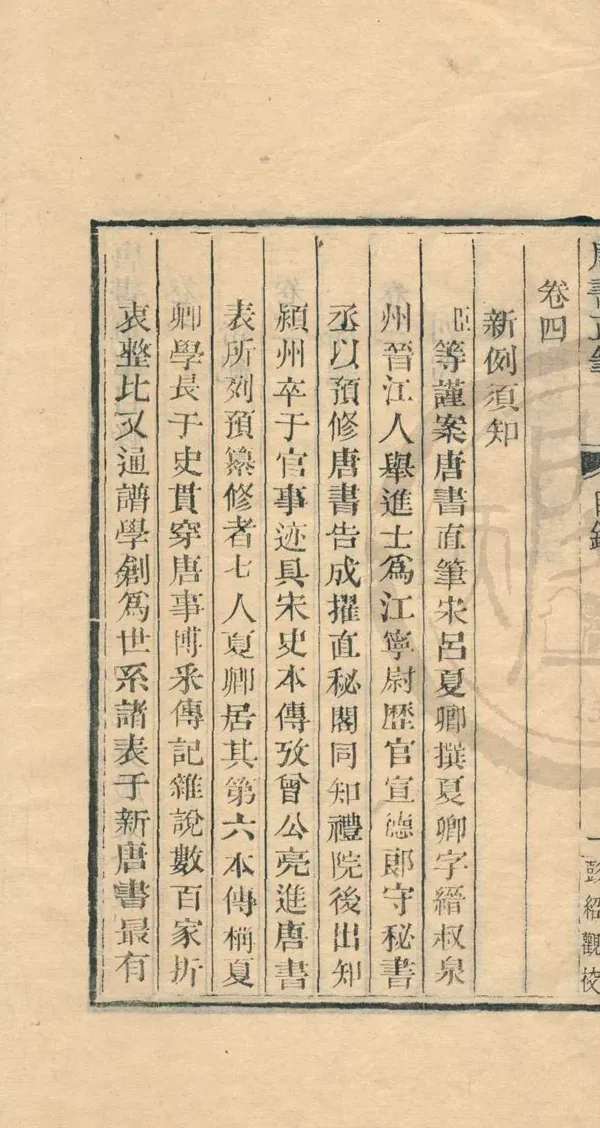 唐書直筆 目錄 一 彭紹觀校
卷四
新例須知
臣等謹案唐書直筆宋呂夏卿撰夏卿字縉叔泉
州晉江人舉進士爲江寧尉歷官宣德郎守秘書
丞以預修唐書告成擢直秘閣同知禮院後出知
潁州卒于官事迹具宋史本傳攷曾公亮進唐書
表所列預纂修者七人夏卿居其第六本傳稱夏
卿學長于史貫穿唐事博采傳記雜說數百家折
衷整比又通譜學創爲世系諸表于新唐書最有